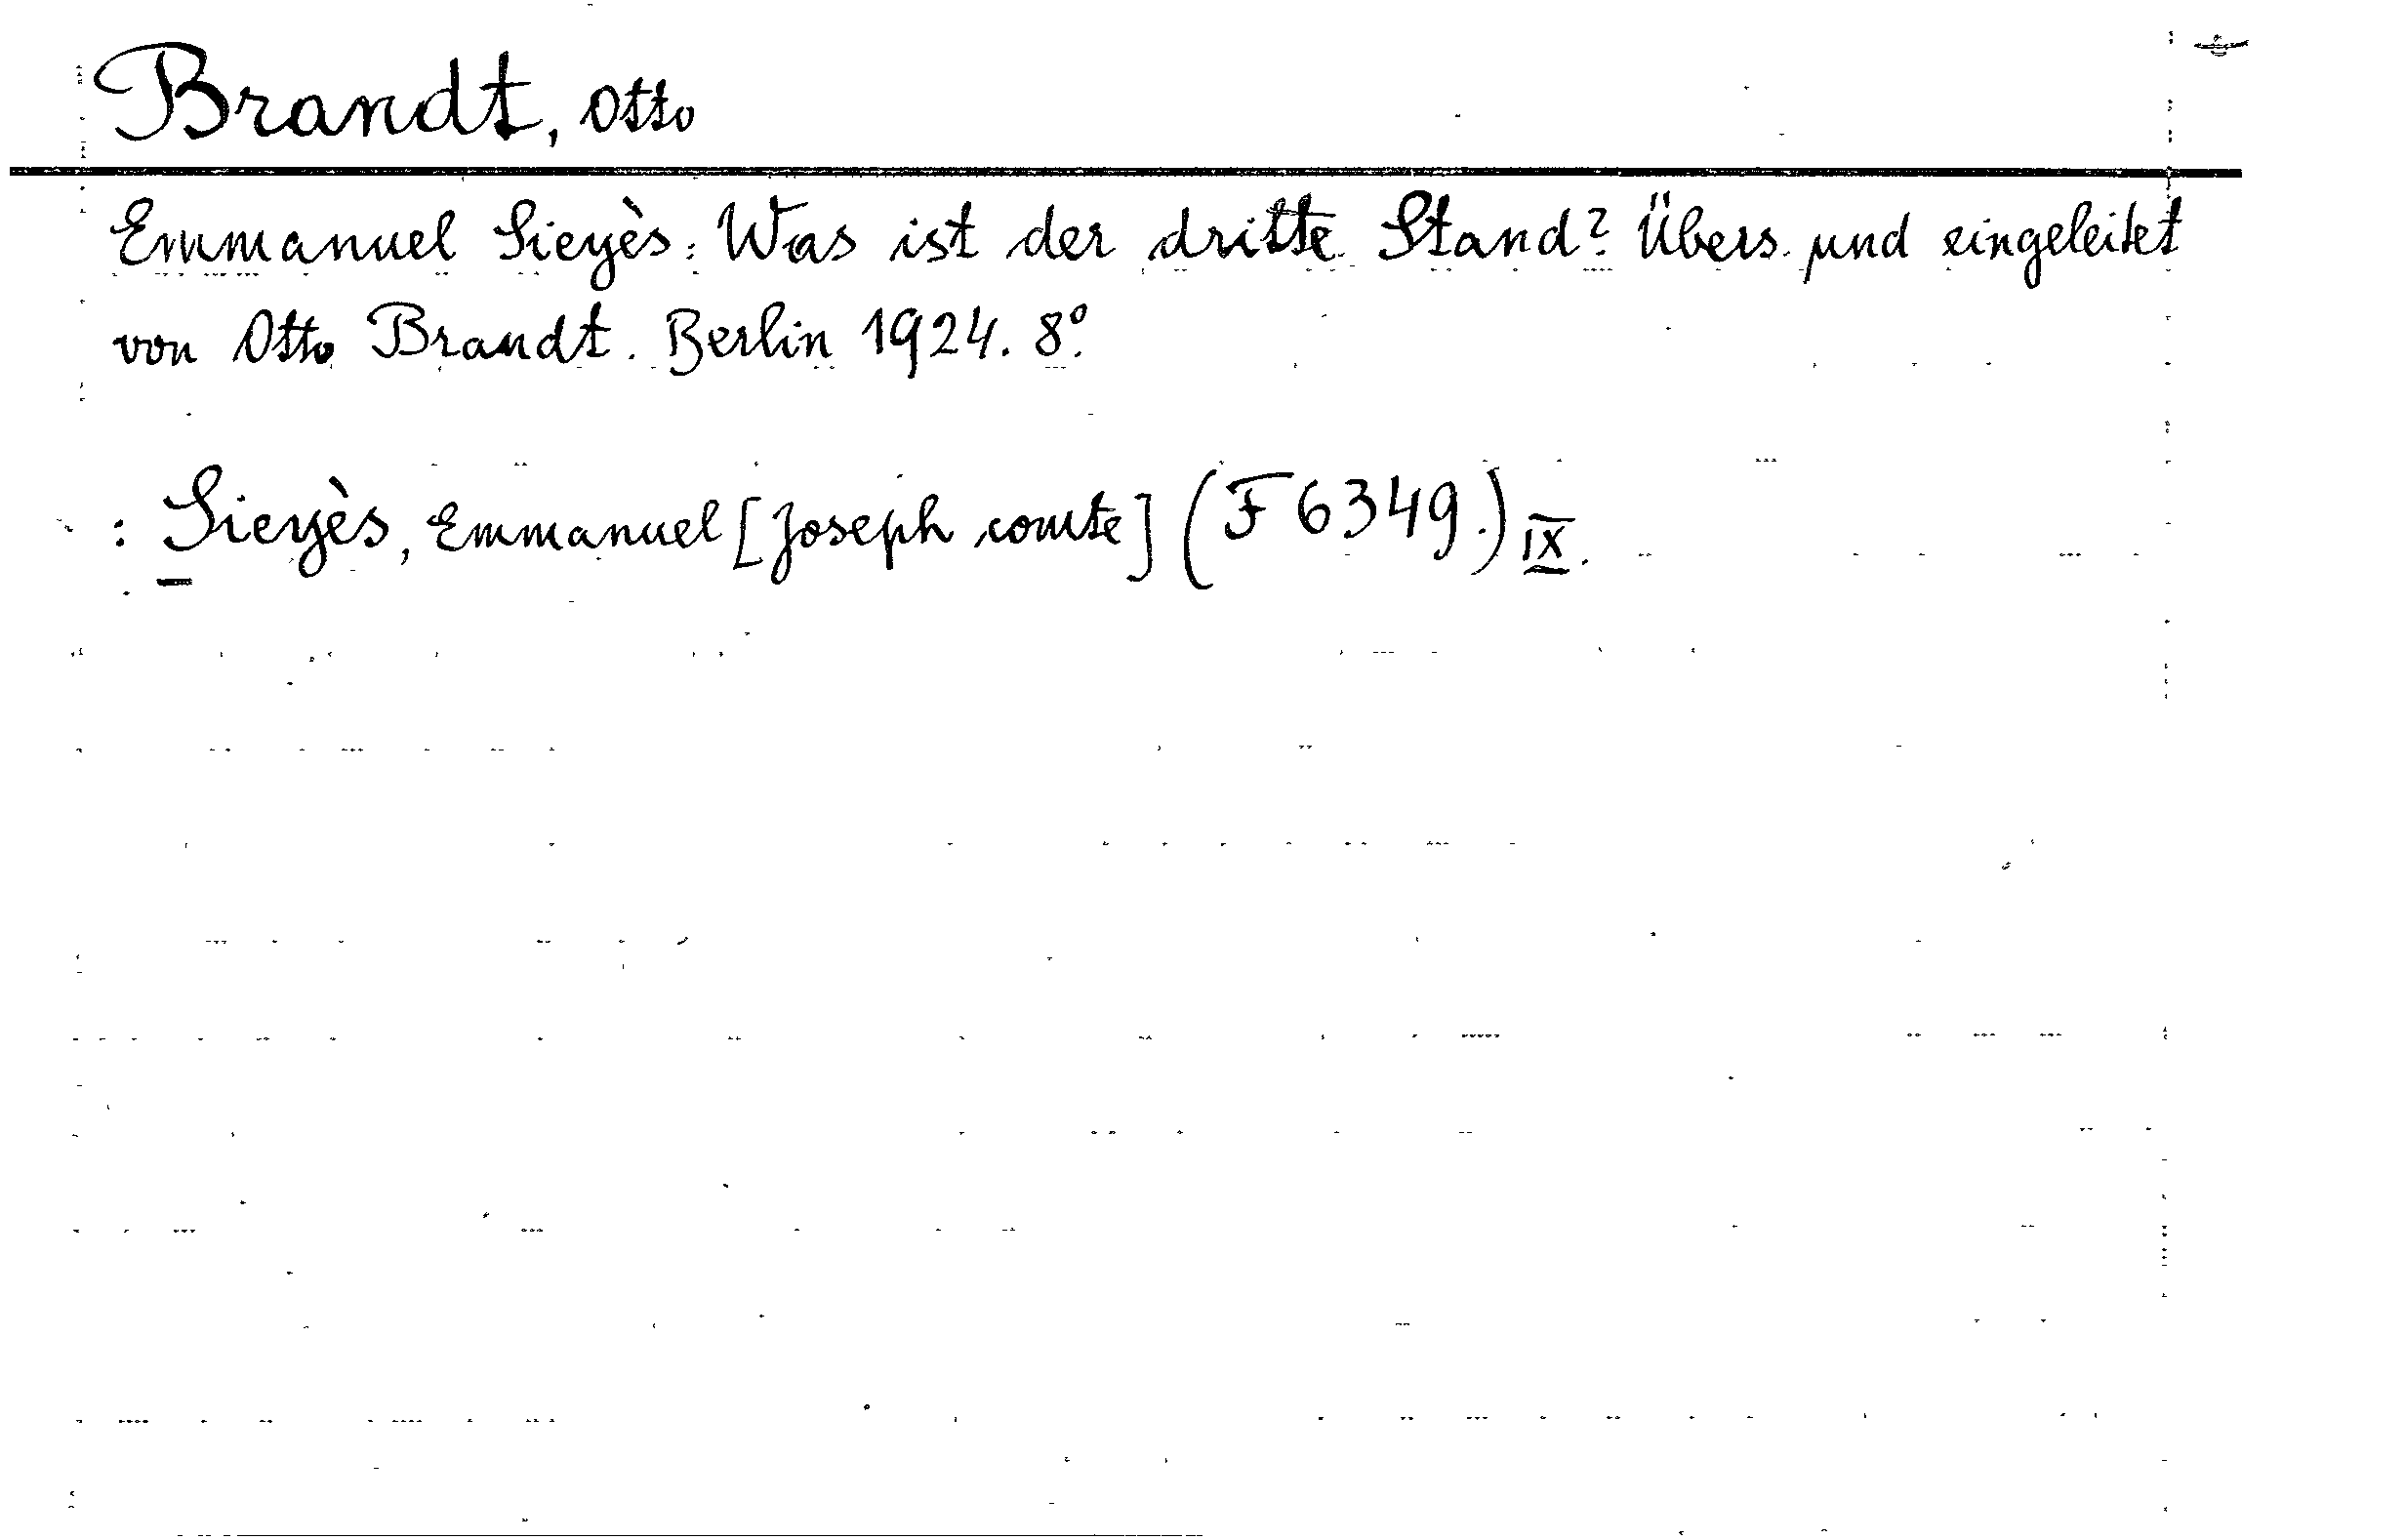 Brandt, Otto
Emmanuel Sieyès: Was ist der dritte Stand? Übers. und eingeleitet
von Otto Brandt. Berlin 1924. 8°.
: Sieyès, Emmanuel [Joseph comte] (F 6349.) IX.